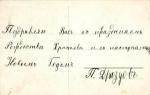 Поздравляю Васъ съ праздникомъ
Рождества Христова и съ наступающ
Новымъ Годомъ
П.